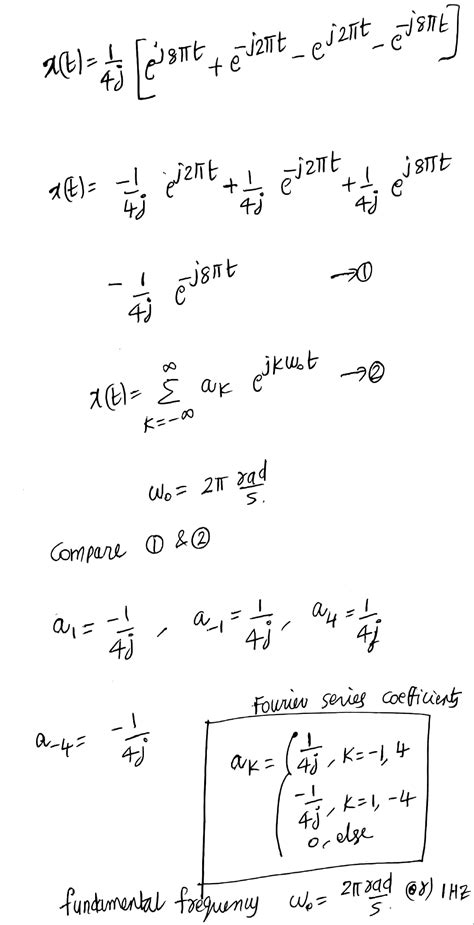 x(t) = 1/4j [e^{j8πt} + e^{-j2πt} - e^{j2πt} - e^{-j8πt}]
x(t) = -1/4j e^{j2πt} + 1/4j e^{-j2πt} + 1/4j e^{j8πt}
- 1/4j e^{-j8πt} → ①
x(t) = ∞ Σ K=-∞ a_K e^{jKω₀t} → ②
ω₀ = 2π rad/s.
Compare ① & ②
a₁ = -1/4j , a₋₁ = 1/4j , a₄ = 1/4j
Fourier series coefficients
a₋₄ = -1/4j
a_K = { 1/4j , K=-1, 4
-1/4j , K=1, -4
0, else
fundamental frequency ω₀ = 2π rad/s. @r) 1HZ